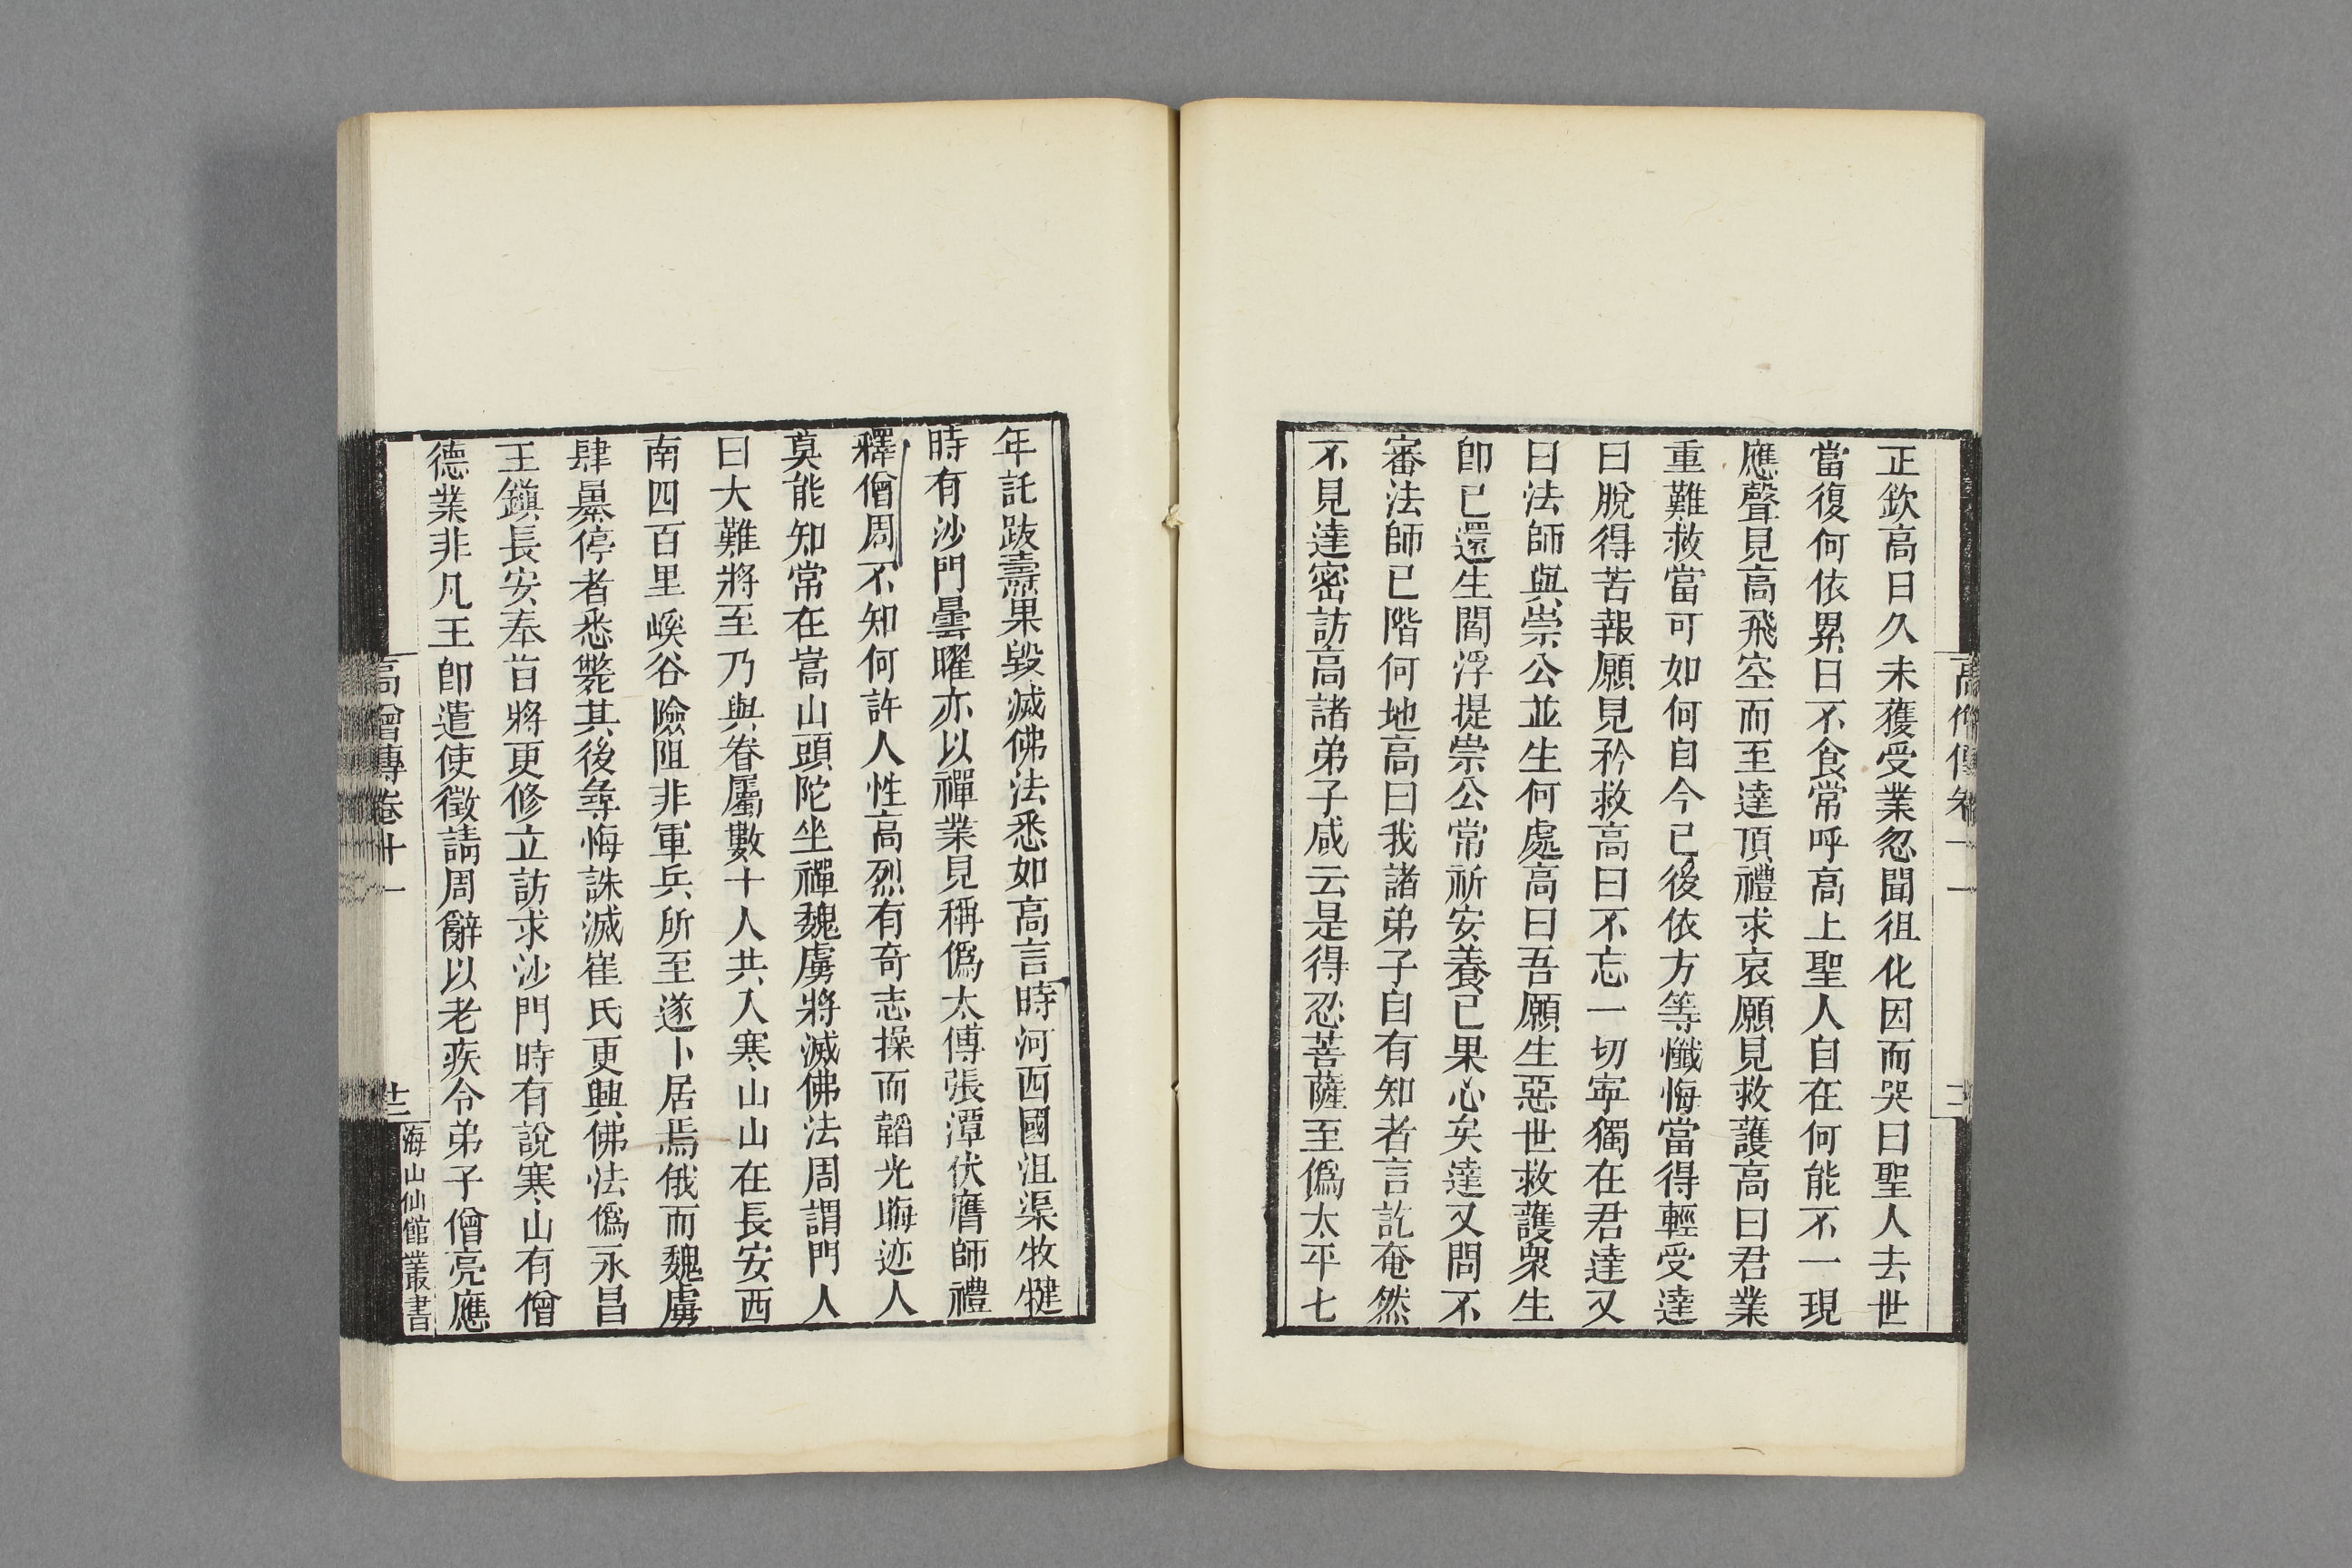 正欽高日久未獲受業忽聞徂化因而哭曰聖人去世
當復何依累日不食常呼高上聖人自在何能不一現
應聲見高飛空而至達頂禮求哀願見救護高曰君業
重難救當可如何自今已後依方等懺悔當得輕受達
曰脫得苦報願見矜救高曰不忘一切寧獨在君達又
曰法師與崇公並生何處高曰吾願生惡世救護衆生
卽已還生閻浮提崇公常祈安養已果心矣達又問不
審法師已階何地高曰我諸弟子自有知者言訖奄然
不見達密訪高諸弟子咸云是得忍菩薩至僞太平七
年託跋燾果毀滅佛法悉如高言時河西國沮渠牧犍
時有沙門曇曜亦以禪業見稱僞太傅張潭伏膺師禮
釋僧周不知何許人性高烈有奇志操而韜光晦迹人
莫能知常在嵩山頭陀坐禪魏虜將滅佛法周謂門人
曰大難將至乃與眷屬數十人共入寒山山在長安西
南四百里嵠谷險阻非軍兵所至遂卜居焉俄而魏虜
肆暴停者悉斃其後尋悔誅滅崔氏更興佛法僞永昌
王鎭長安奉旨將更修立訪求沙門時有說寒山有僧
德業非凡王卽遣使徵請周辭以老疾令弟子僧亮應
高僧傳卷十一
廿二
海山仙館叢書